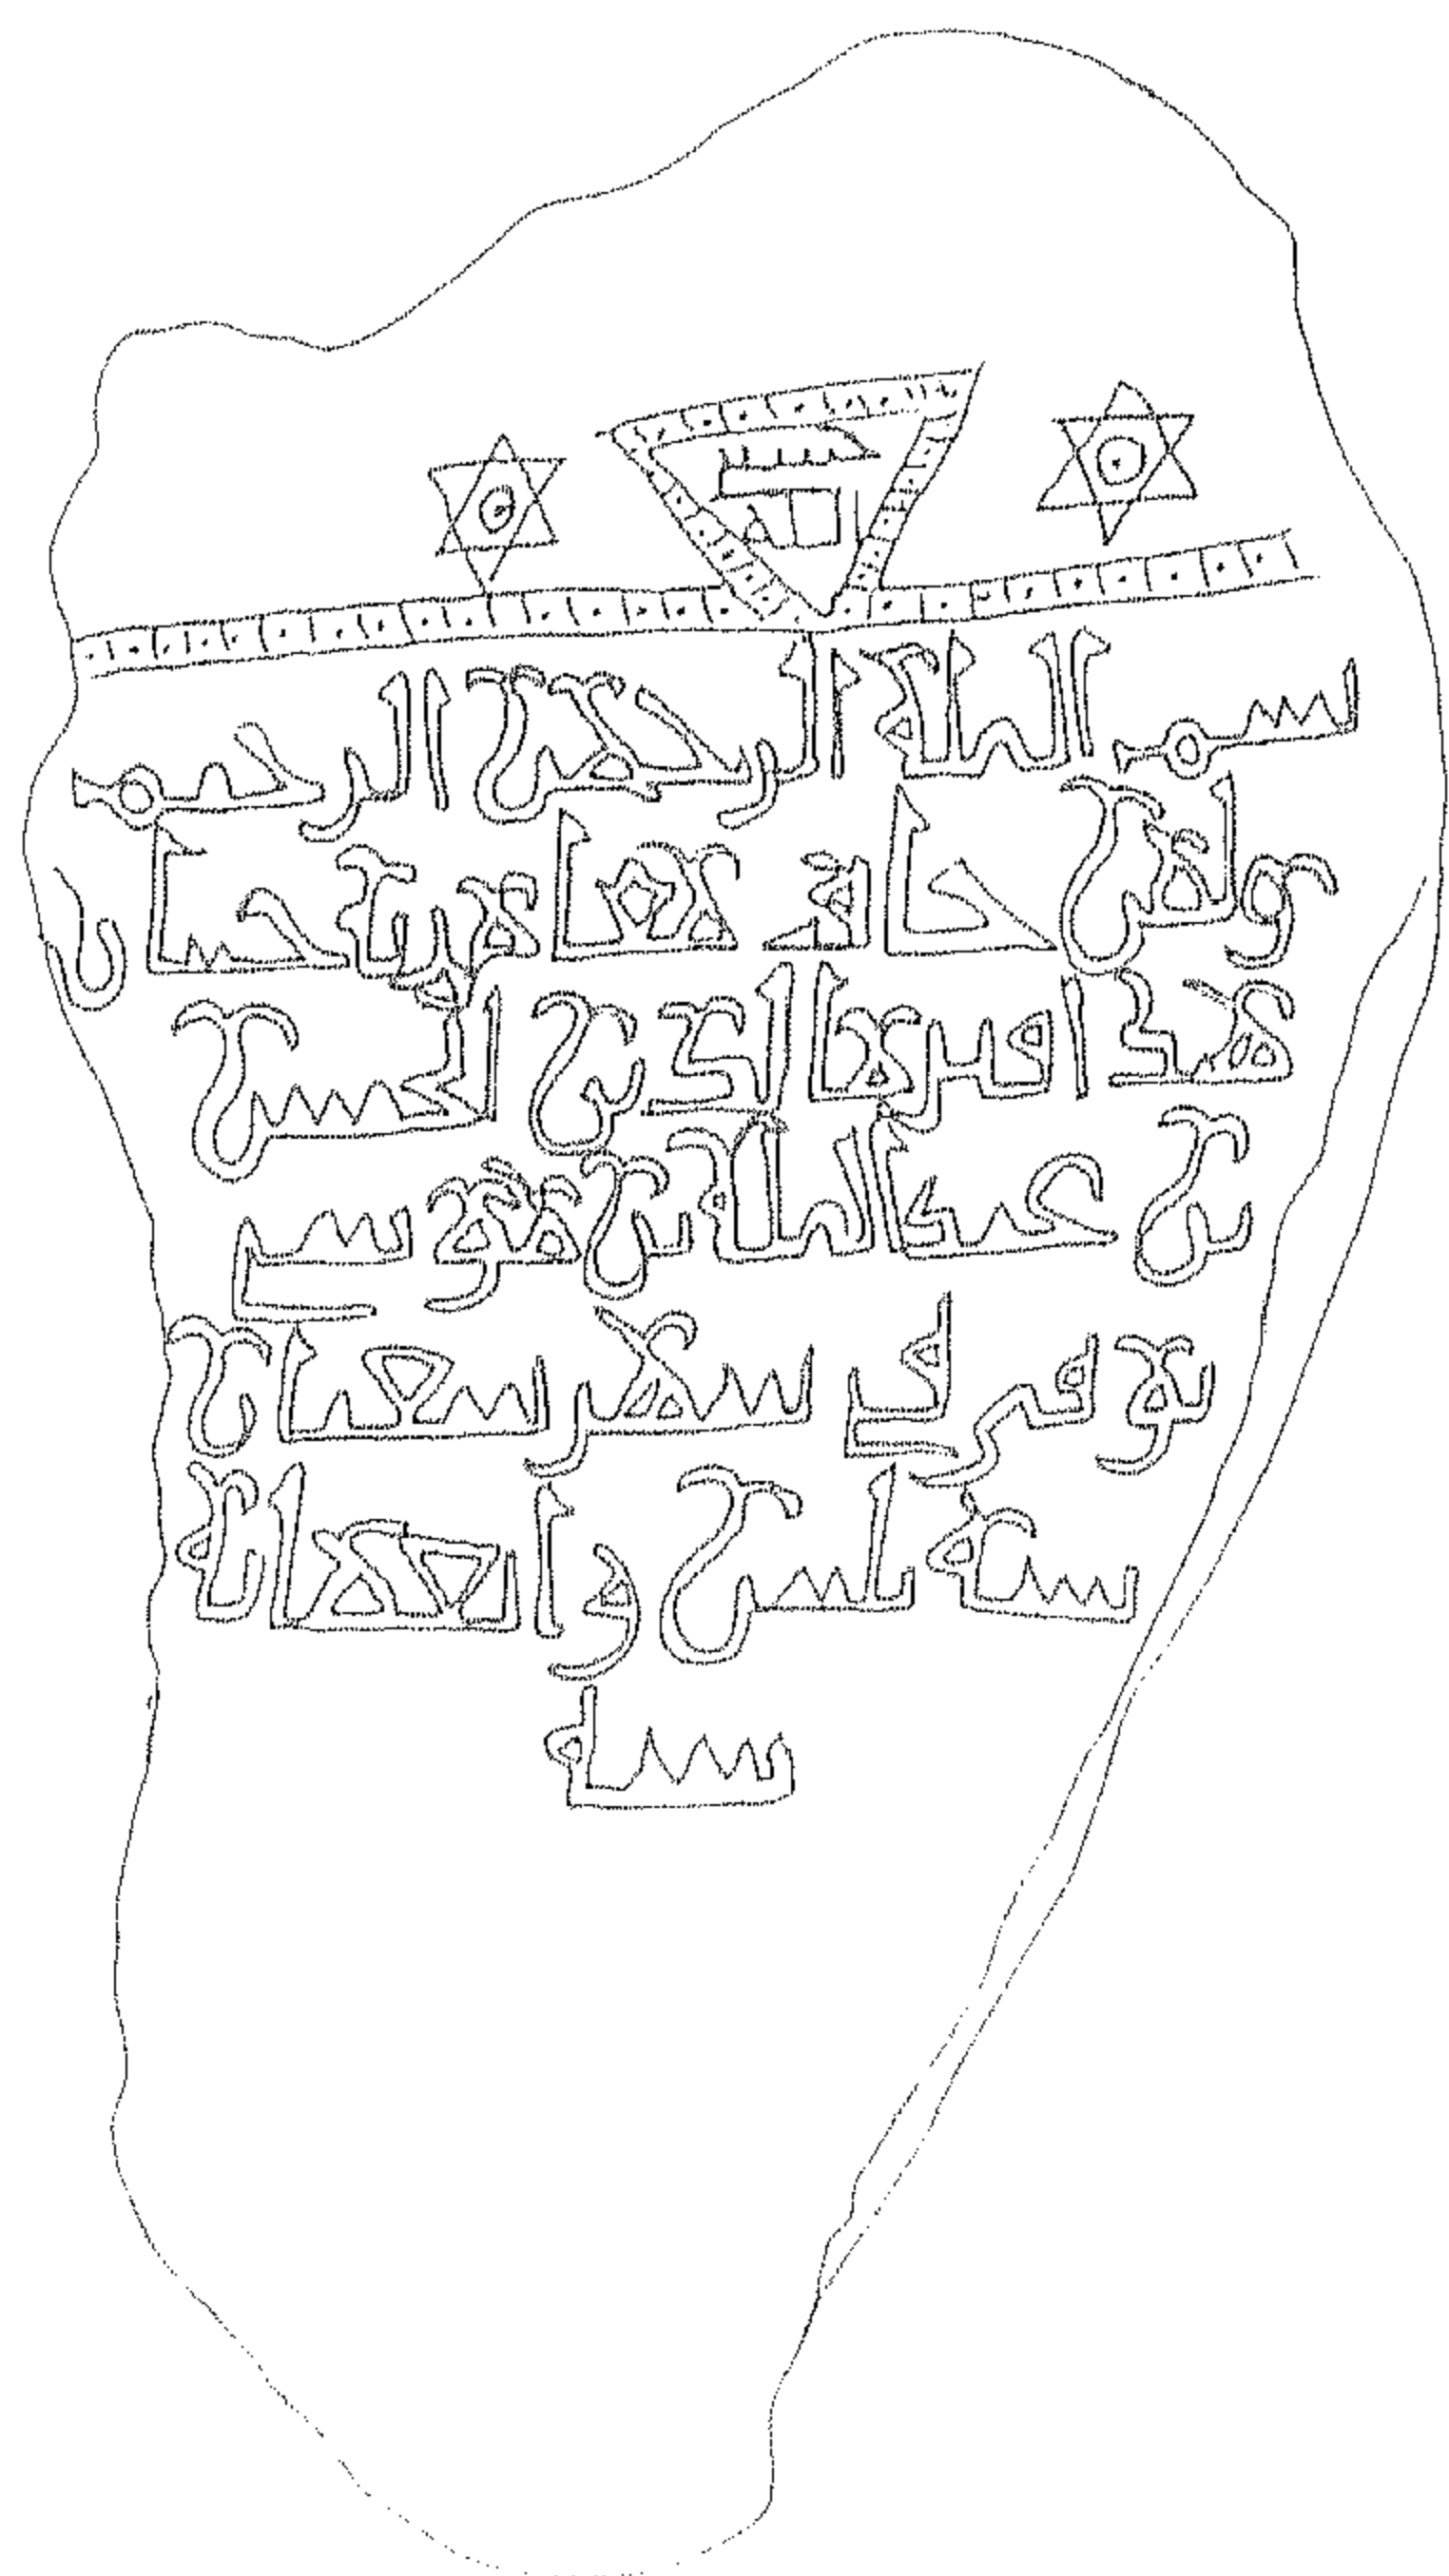 بسم
الله
بسم الله الرحمن الرحيم
ولمن خاف مقام ربه جنتان
هذا قبر الدين الحسن
بن عبد الله بن موسى
توفي في شهر رمضان
سنة ثلثين و اربعمائة
سنة